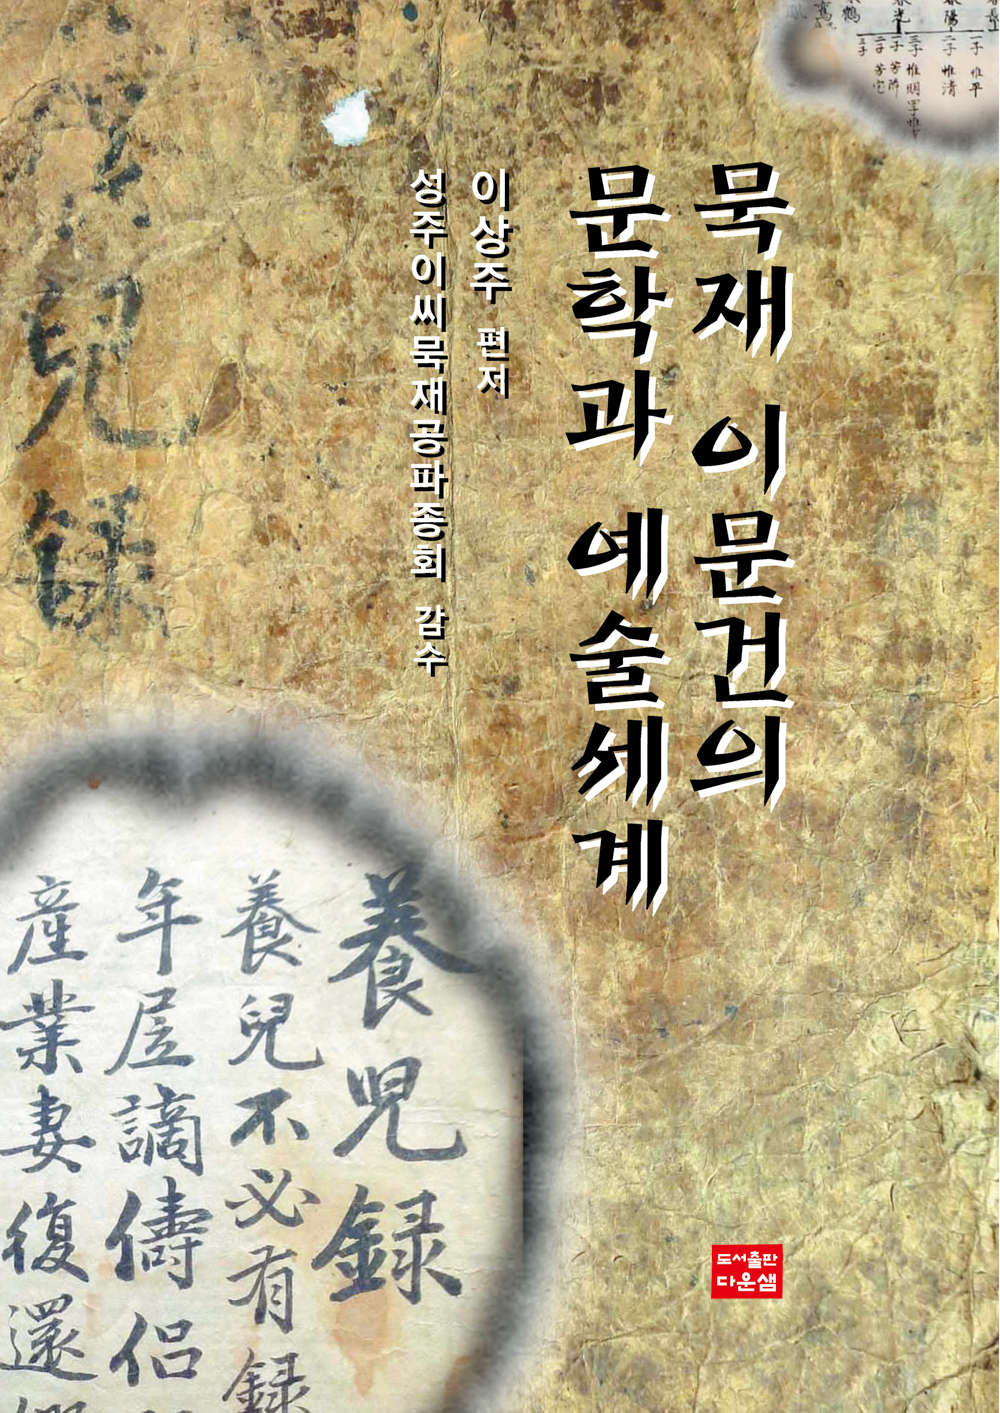 묵재 이문건의
문학과 예술세계
이상주 편저
성주이씨묵재공파종회 감수
養兒錄
養兒不必有録
年居謫儔侶
産業妻復還
兒錄
一子 惟平
二子 惟淸
도서출판
다운샘